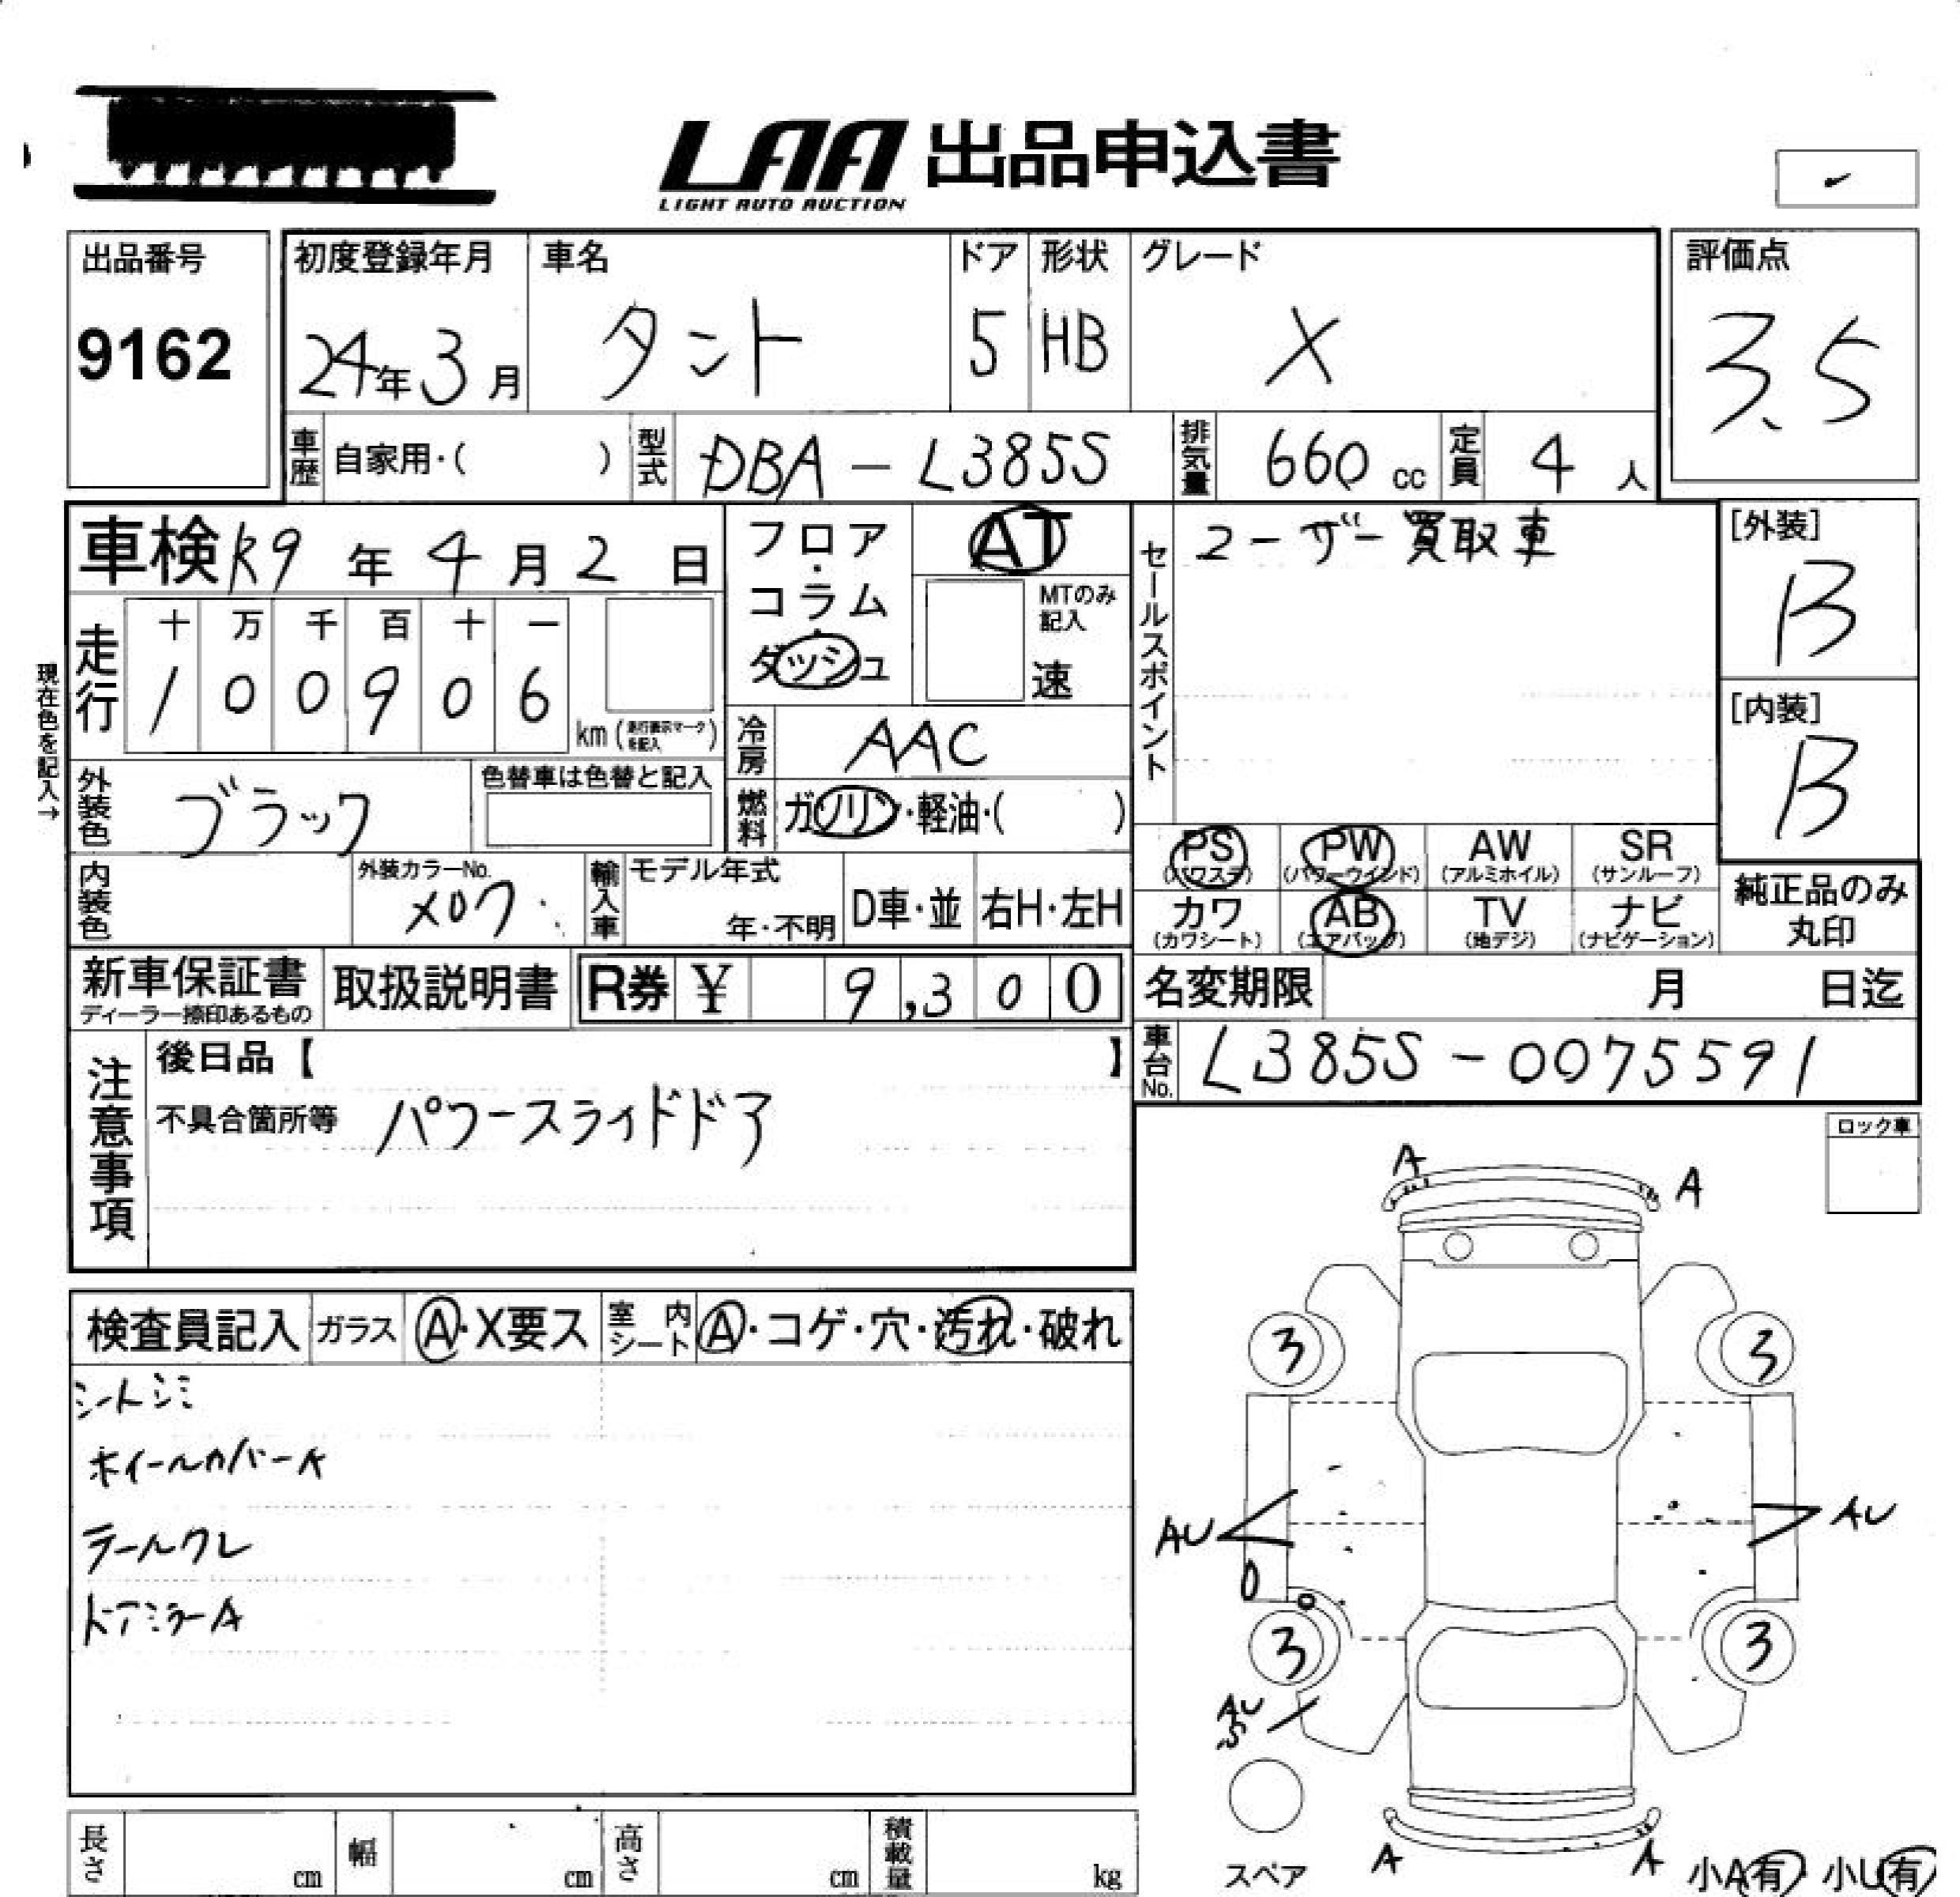 LAA 出品申込書
LIGHT AUTO AUCTION
出品番号
9162
初度登録年月
24年3月
車名
タント
ドア
5
形状
HB
グレード
X
評価点
3.5
車歴 自家用・( )
型式 DBA-L385S
排気量 660 cc
定員 4 人
車検 R9年4月2日
現在色を記入→
走行
十 万 千 百 十 一
1 0 0 9 0 6
km (走行表示マークを記入)
フロア・コラム・ダッシュ
AT
MTのみ記入
速
冷房 AAC
燃料 ガソリン・軽油・( )
外装色 ブラック
色替車は色替と記入
内装色
外装カラーNo.
X07
輸入車
モデル年式
年・不明
D車・並
右H・左H
セールスポイント
ユーザー買取車
[外装]
B
[内装]
B
PS (パワステ)
PW (パワーウインド)
AW (アルミホイル)
SR (サンルーフ)
カワ (カワシート)
AB (エアバッグ)
TV (地デジ)
ナビ (ナビゲーション)
純正品のみ
丸印
新車保証書
ディーラー捺印あるもの
取扱説明書
R券 ¥ 9,300
名変期限 月 日迄
車台No. L385S-0075591
注意事項
後日品【 】
不具合箇所等 パワースライドドア
ロック車
検査員記入
ガラス A・X要ス
室内シート A・コゲ・穴・汚れ・破れ
シートシミ
ホイールカバーA
テールワレ
ドアミラーA
A
A
3
3
AU
AU
3
3
AU
S
A
A
スペア
小A有・小U有
長さ cm
幅 cm
高さ cm
積載量 kg